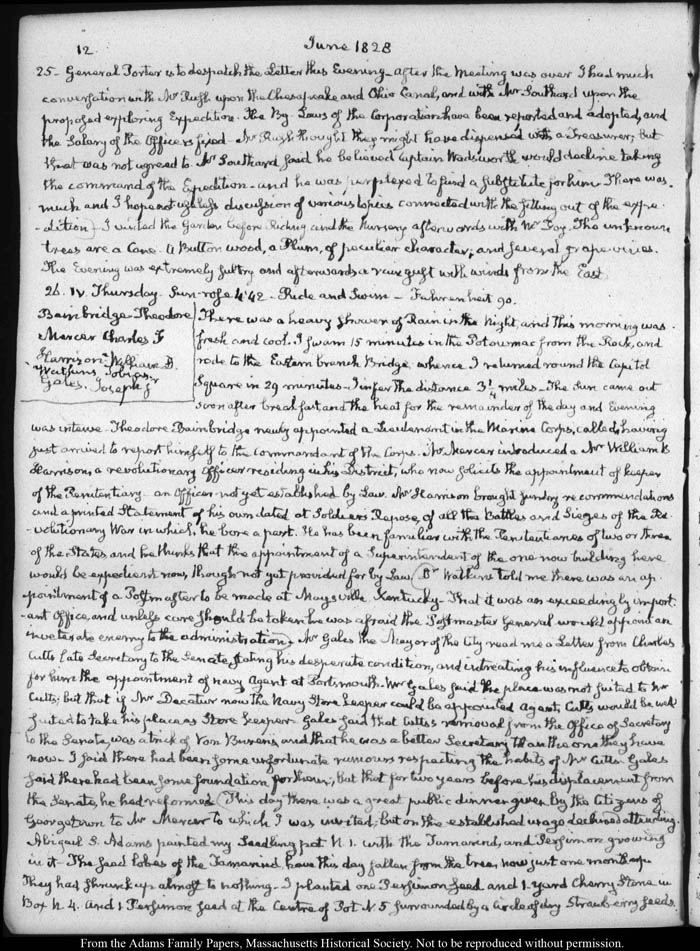 12
June 1828
25. General Porter is to despatch the Letter this Evening_ after the Meeting was over I had much
conversation with Mr Rush upon the Chesapeake and Ohio Canal, and with Mr Southard upon the
proposed exploring Expedition. The By-Laws of the Corporation have been reported and adopted, and
the Salary of the Officers fixed_ Mr Rush thought they might have dispensed with a Treasurer; but
that was not agreed to. Mr Southard said he believed Captain Wadsworth would decline taking
the command of the Expedition_ and he was perplexed to find a substitute for him. There was
much and I hope not useless discussion of various topics connected with the fitting out of the expe-
-dition) I visited the Garden before Riding and the Nursery afterwards with Mr Foy. The unknown
trees are a Cane. a Button wood, a Plum, of peculiar character, and several grape vines.
The Evening was extremely sultry and afterwards a gust with winds from the East
26. IV. Thursday. Sun rose 4.42_ Ride and Swim_ Fahrenheit 90.
Bainbridge_Theodore
Mercer Charles F
Harrison_William B.
Watkins. Tobias.
Gales. Joseph Jr
There was a heavy shower of Rain in the Night, and this morning was
fresh and cool. I swam 15 minutes in the Potowmac from the Rock, and
rode to the Eastern branch Bridge, whence I returned round the Capitol
Square in 29 minutes_ I infer the distance 3 1/4 miles_ The Sun came out
soon after breakfast and the heat for the remainder of the day and Evening
was intense. Theodore Bainbridge newly appointed a Lieutenant in the Marine Corps, called, having
just arrived to report himself to the commandant of the Corps. Mr Mercer introduced a Mr William B
Harrison, a revolutionary Officer residing in his District, who now solicits the appointment of keeper
of the Penitentiary_ an Officer not yet established by Law. Mr Harrison brought sundry recommendations
and a printed Statement of his own dated at Soldiers Repose, of all the Battles and Sieges of the Re-
-volutionary War in which he bore a part. He has been familiar with the Penitentiaries of two or three
of the States and he thinks that the appointment of a Superintendent of the one now building here
would be expedient now, though not yet provided for by Law. (Dr Watkins told me there was an ap-
-pointment of a Postmaster to be made at Maysville, Kentucky_ That it was an exceedingly import-
-ant Office, and unless care should be taken he was afraid the Postmaster General would appoint an
inveterate enemy to the administration) Mr Gales the Mayor of the City read me a Letter from Charles
Cutts late Secretary to the Senate, stating his desperate condition, and intreating his influence to obtain
for him the appointment of navy Agent at Portsmouth_ Mr Gales said the place was not suited to Mr
Cutts; but that if Mr Decatur now the Navy Store keeper could be appointed Agent, Cutts would be well
suited to take his place as Store keeper_ Gales said that Cutts's removal from the Office of Secretary
to the Senate, was a trick of Van Buren's and that he was a better Secretary than the one they have
now_ I said there had been some unfortunate rumours respecting the habits of Mr Cutts_ Gales
said there had been some foundation for them; but that for two years before his displacement from
the Senate, he had reformed (This day there was a great public dinner given by the Citizens of
Georgetown to Mr Mercer to which I was invited, but on the established usage declined attending.
Abigail S. Adams painted my Seedling pot N. 1. with the Tamarind, and Persimon growing
in it_ The seed lobes of the Tamarind have this day fallen from the tree, now just one month up
They had shrunk up almost to nothing_ I planted one Persimon seed and 1. yard Cherry Stone in
Box N. 4. and 1 Persimon seed at the Centre of Pot N. 5 surrounded by a circle of day Strawberry seeds.
From the Adams Family Papers, Massachusetts Historical Society. Not to be reproduced without permission.